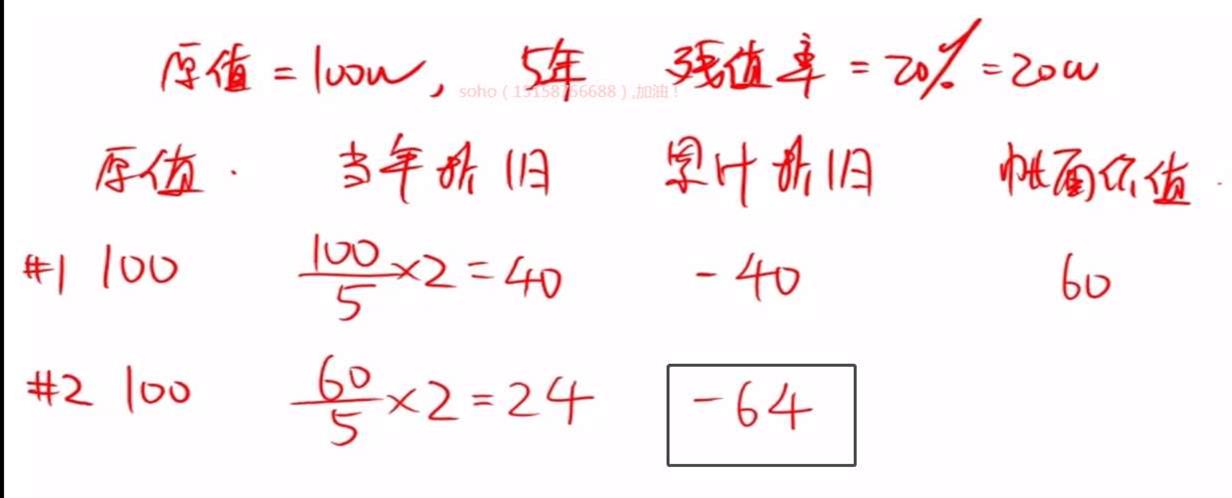 原值 = 100w, 5年 残值率 = 20% = 20w
soho(15158766688),加油!
原值. 当年折旧 累计折旧 帐面价值.
#1 100 100/5 ×2 = 40 -40 60
#2 100 60/5 ×2 = 24 -64